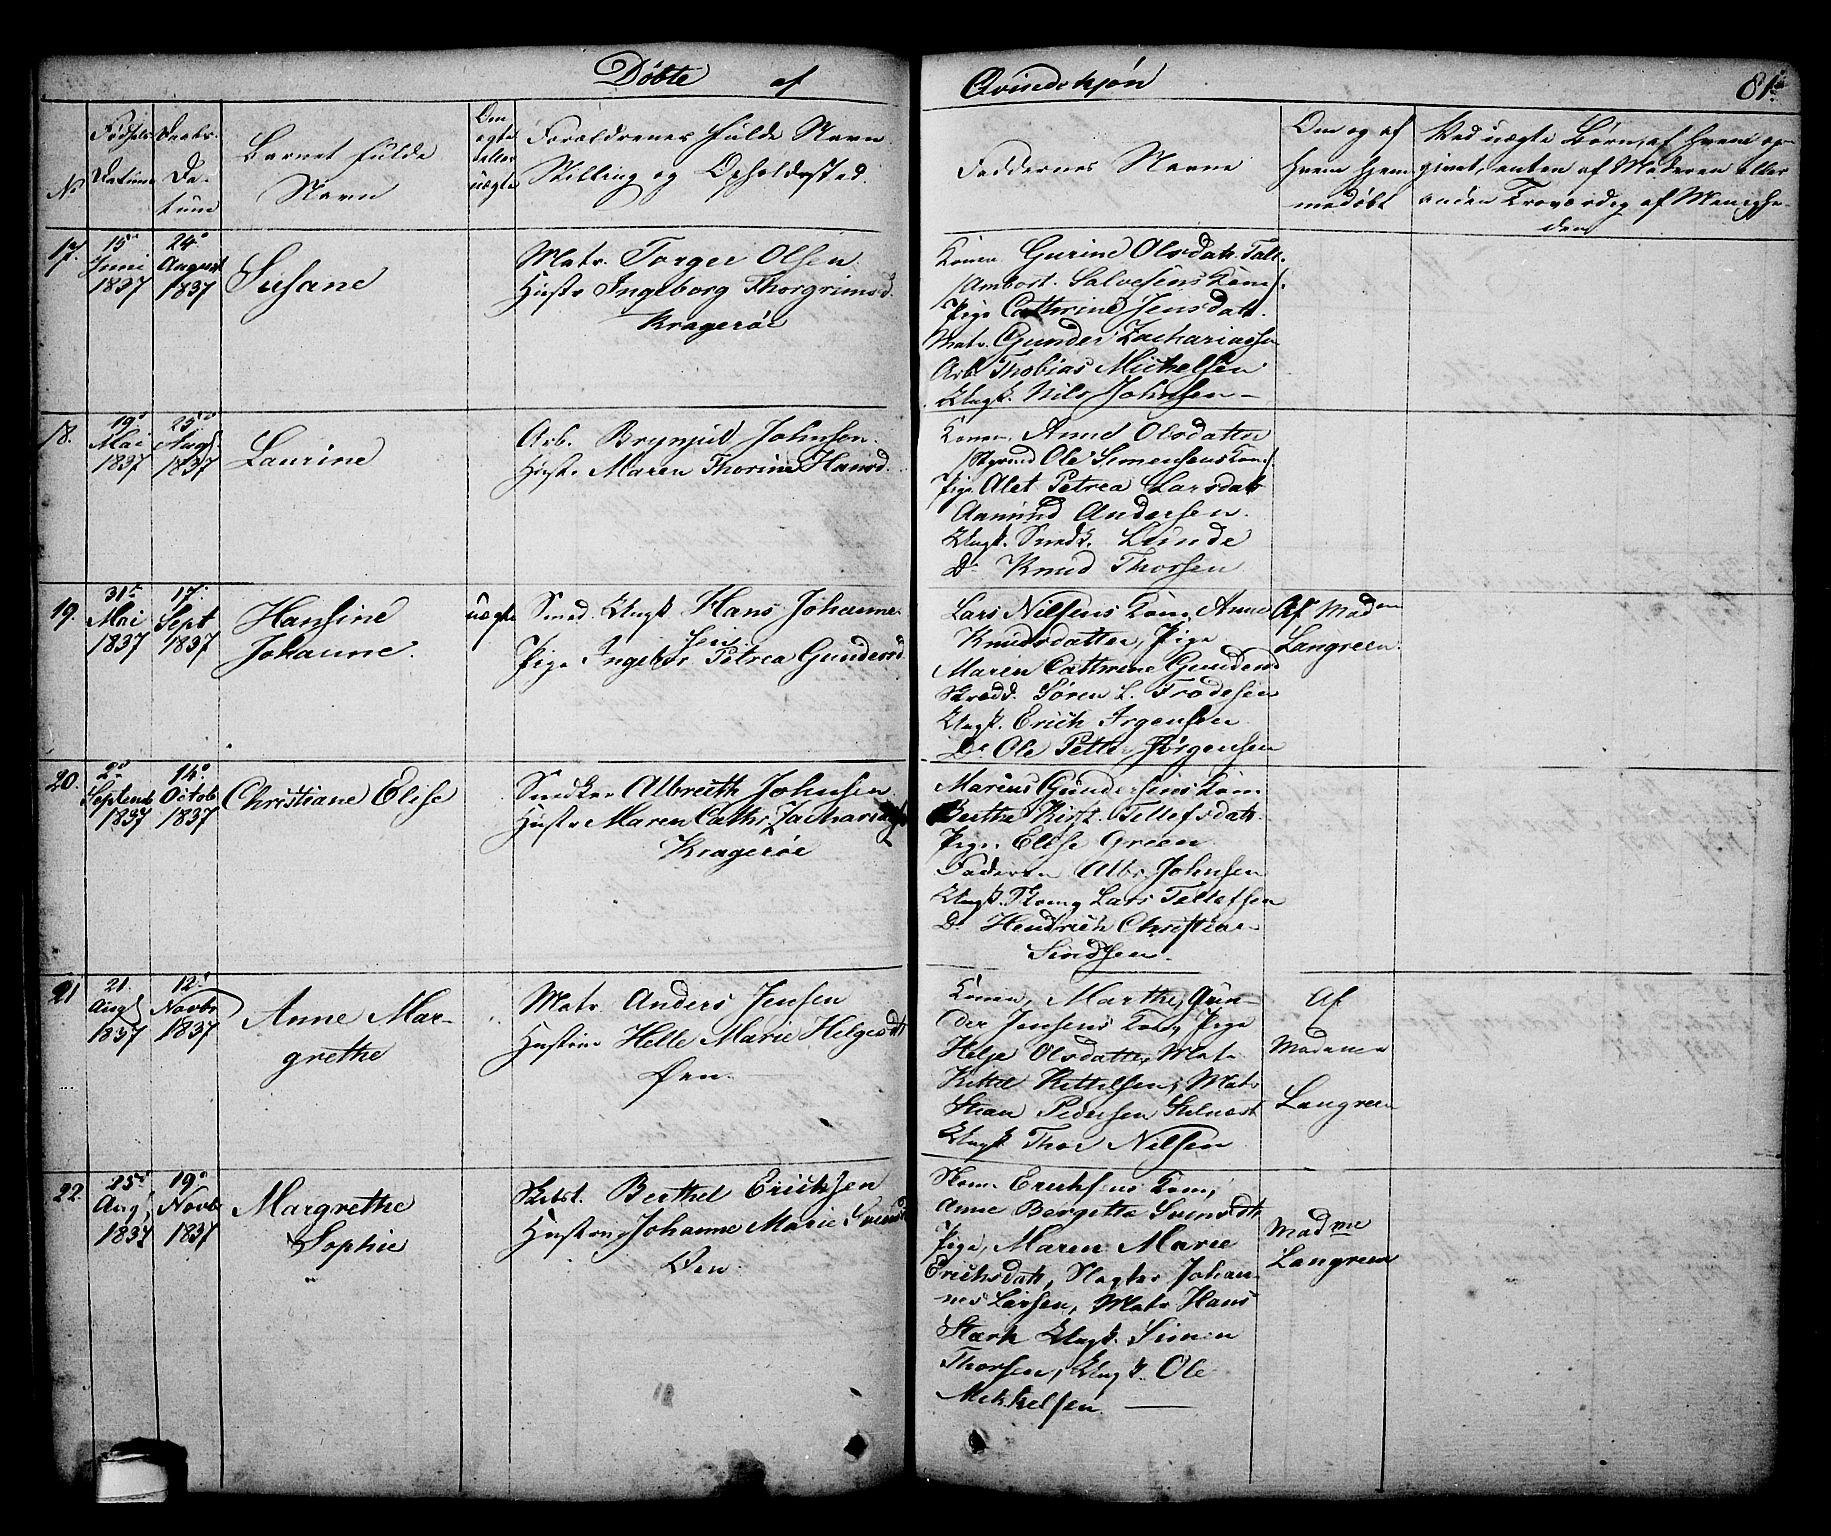 Døbte af Qvindekjøn 81.
No
Fødsels Datum
Daabs Datum
Barnet fulde Navn
Om ægte eller uægte
Foraldrenes fulde Navn
Stilling og Opholdssted.
Faddernes Navne
Om og af hvem hjemmedøbt
Ved uægte Børn, af hvem op-
givet, enten af Moderen eller
anden Troværdig af Menighe-
den
17.
15de Juni 1837
24de August 1837
Susane
Matr. Torger Olsen.
Hustr Ingeborg Thorgrimsd.
Kragerøe
Konen Gurine Olsdatr Tall.
Salvesens Kone
Pige Cathrine Jensdatr.
Matr. Gunder Zachariassn
Arb. Thobias Mickelsen
Ungk. Nils Johnsen –
18.
19de Mai 1837
25de Augs 1837
Laurine
Arb. Brynjul Johnsen.
Hustr Maren Thorine Hansd.
Konen, Anne Olsdatter
Styrmd Ole Simensens Kone
Pige Alet Petrea Larsdatr
Aamund Andersen.
Ungk. Smedk. Lunde
Do Knud Thorsen
19.
31te Mai 1837
17de Sept 1837
Hansine
Johanne.
uægte
Smed. Ungk Hans Johanne-
sen
Pige Ingebor Petrea Gundersd
Lars Nilsens Kone, Anne
Knudsdatter, Pige
Maren Cathrine Gundersd
Skrædd. Søren L. Frodesen
Ungk. Erich Irgensen
Do Ole Petter Jørgensen
Af Madm
Langreen.
20.
2de Septemb 1837
14de Octob 1837
Christiane Elise
Snedker Albreth Johnsen
Hustr Maren Cathr. Zacharias
Kragerøe
Marius Gundersens Kone
Berthe Kirst. Tellefsdatr.
Pige Elise Green
Faderen Albr. Johnsen
Ungk. Lars Tellefsen
Do Hendrich Christia-
Sindsen.
21
21 Augs 1837
12te Novbr 1837
Anne Mar-
grethe
Matr Anders Jensen
Hustrue Helle Marie Helgesdt
Øen.
Konen, Marthe Gun-
der Jensens Kone Pige
Helje Olsdatter, Mat.
Kittel Kittelsen, Matr
Stian Pedersen Stilnæst
Ungk Thor Nilsen
Af
Madame
Langreen
22.
25de Aug. 1837
19de Novbr 1837
Margrethe
Sophie
Skibst. Berthel Erichsen
Hustrue Johanne Marie Svends
Øen.
Skom. Erichsens Kone,
Anne Bergette Svensdt.
Pige, Maren Marie
Erichsdatr, Slagter Johan-
nes Larsen, Matr Hans
Stark Ungk. Simen
Thorsen, Ungk. Ole
Mekkelsen.
Madme
Langreen